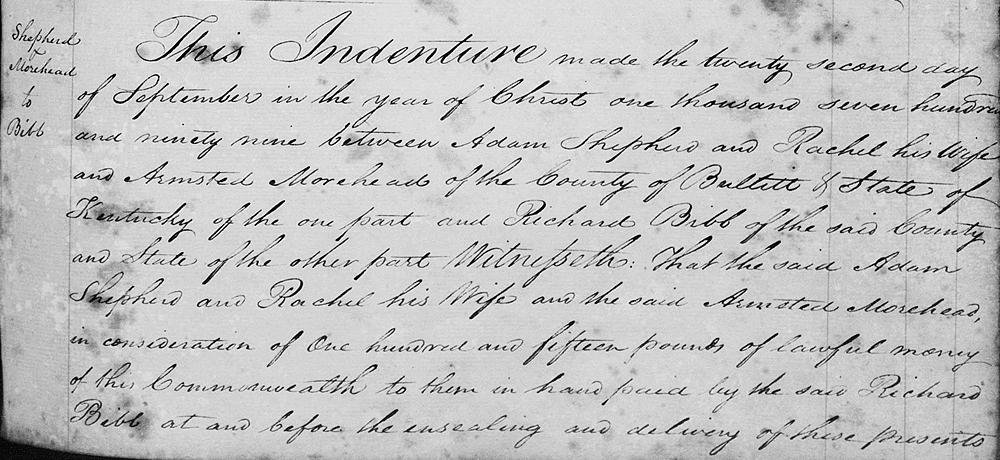 Shepherd
&
Morehead
to
Bibb
This Indenture made the twenty second day
of September in the year of Christ one thousand seven hundred
and ninety nine between Adam Shepherd and Rachel his Wife
and Armsted Morehead of the County of Bullitt & State of
Kentucky of the one part and Richard Bibb of the said County
and State of the other part Witnesseth: That the said Adam
Shepherd and Rachel his Wife and the said Armsted Morehead,
in consideration of One hundred and fifteen pounds of lawful money
of this Commonwealth to them in hand paid by the said Richard
Bibb at and before the ensealing and delivery of these presents